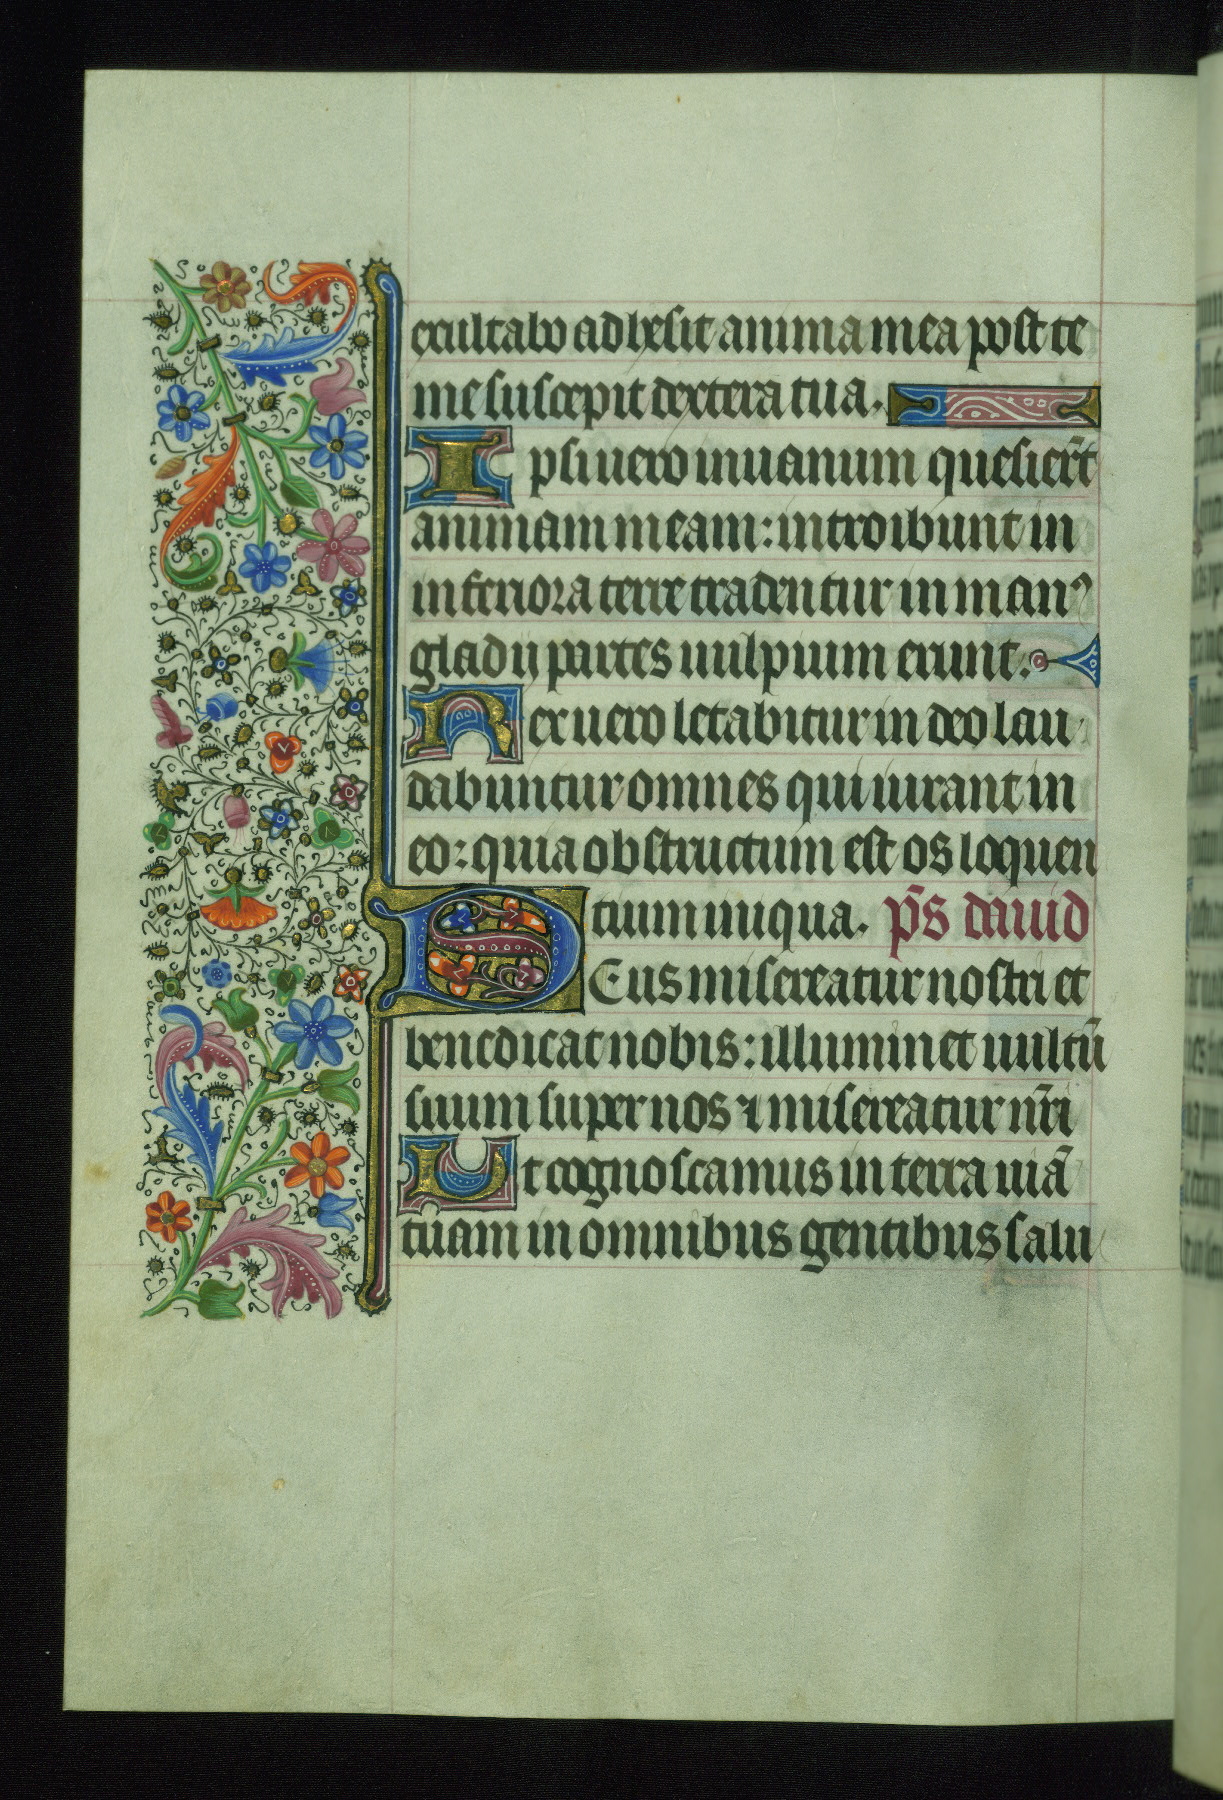 exultabo adhesit anima mea post te
me suscepit dextera tua.
Ipsi uero in uanum quesier̄t
animam meam: introibunt in
inferiora terre tradentur in manꝰ
gladij partes uulpium erunt.
Rex uero letabitur in deo lau
dabuntur omnes qui iurant in
eo: quia obstructum est os loquen
tium iniqua. p̄s dauid
Deus misereatur nostri et
benedicat nobis: illuminet uultū
suum super nos ⁊ misereatur nr̄i
Ut cognoscamus in terra uiā
tuam in omnibus gentibus salu